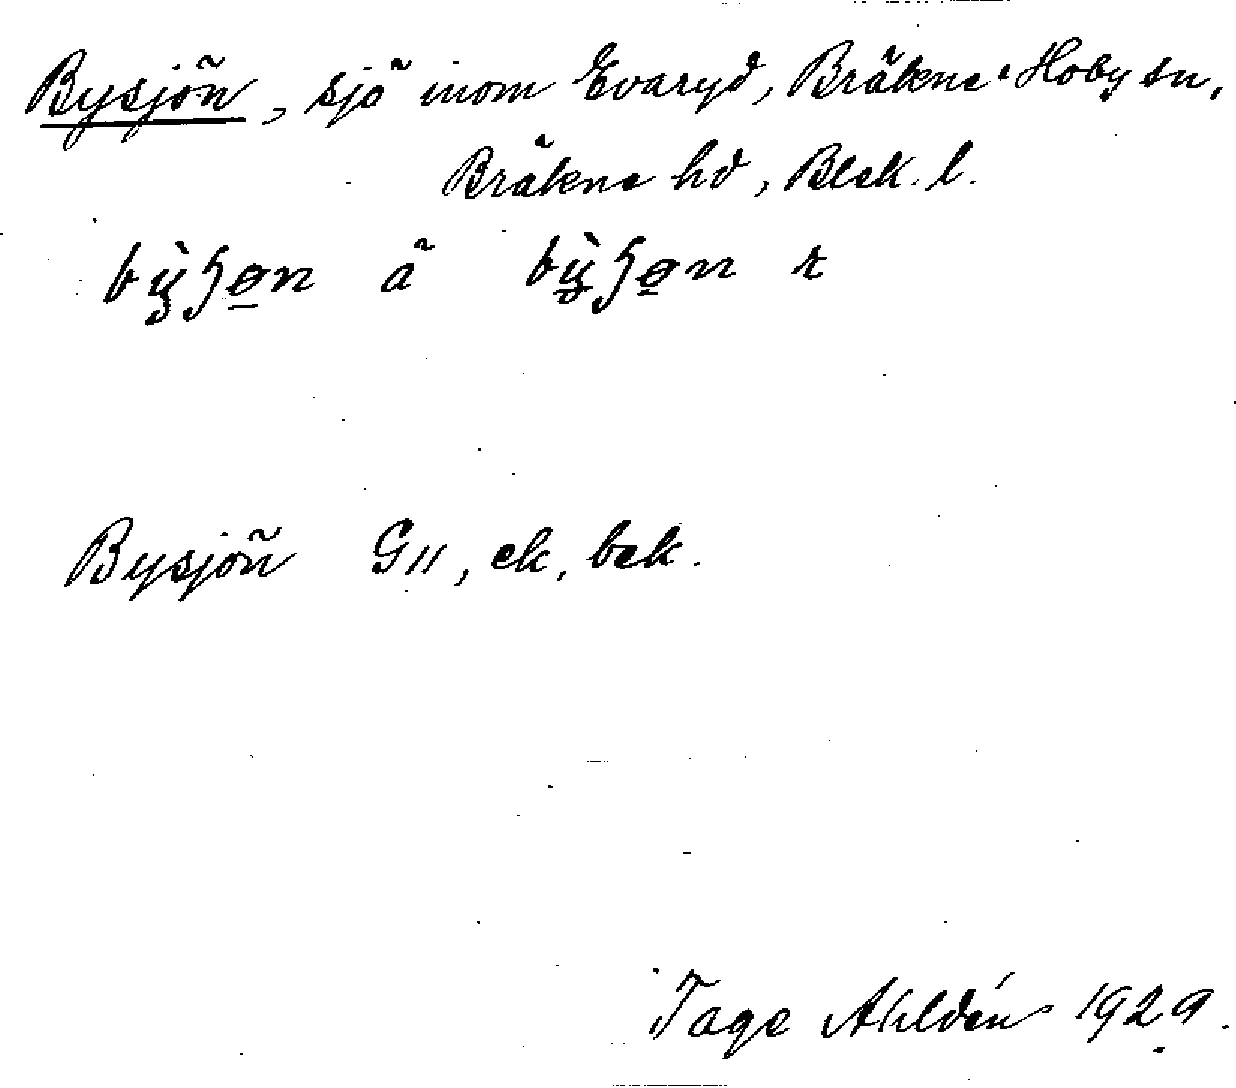 Bysjön, sjö inom Evaryd, Bräkne-Hoby sn,
Bräkne hd, Blek. l.
Bysjön G11, ek, bek.
Tage Ahldén 1929.